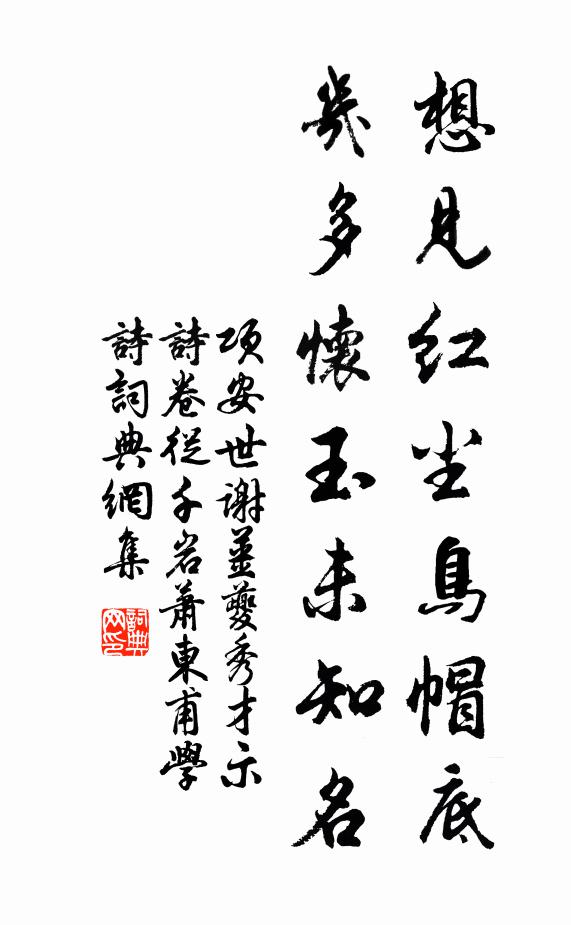 想見紅尘烏帽底
幾多懷玉未知名
項安世謝薑夔秀才示
詩卷從千岩蕭東甫學
詩詞典網集
詞典
网印